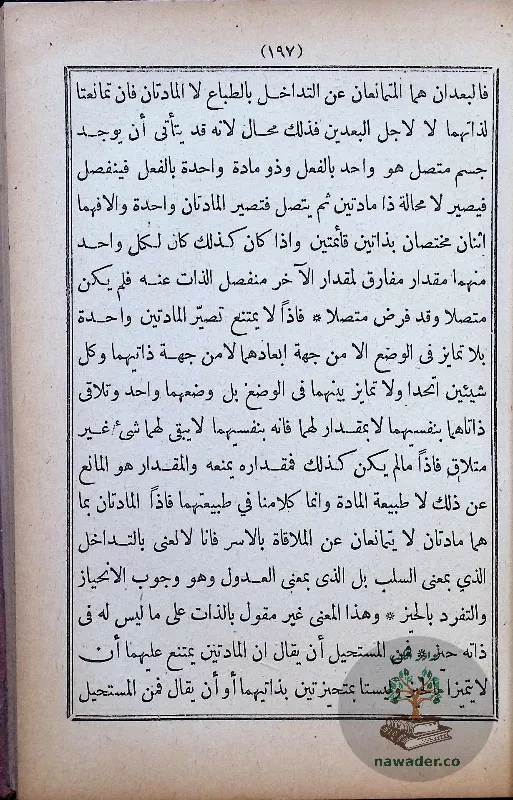 (١٩٧)
فالبعدان هما المتمانعان عن التداخل بالطباع لا المادتان فان تمانعتا
لذاتهما لا لاجل البعدين فذلك محال لانه قد يتأتى أن يوجد
جسم متصل هو واحد بالفعل وذو مادة واحدة بالفعل فينفصل
فيصير لا محالة ذا مادتين ثم يتصل فتصير المادتان واحدة والافهما
اثنان مختصان بذاتين قائمتين واذا كان كذلك كان لكل واحد
منهما مقدار مفارق لمقدار الآخر منفصل الذات عنه فلم يكن
متصلا وقد فرض متصلا * فاذاً لا يمتنع تصيّر المادتين واحدة
بلا تمايز في الوضع الا من جهة ابعادهما لا من جهة ذاتيهما وكل
شيئين اتحدا ولا تمايز بينهما في الوضع بل وضعهما واحد وتلاقى
ذاتاهما بنفسيهما لا بمقدار لهما فانه بنفسيهما لا يبقى لهما شئ غير
متلاق فاذاً مالم يكن كذلك فمقداره يمنعه والمقدار هو المانع
عن ذلك لا طبيعة المادة وانما كلامنا في طبيعتهما فاذاً المادتان بما
هما مادتان لا يتمانعان عن الملاقاة بالاسر فانا لا لعنى بالتداخل
الذي بمعنى السلب بل الذى بمعنى العدول وهو وجوب الانحياز
والتفرد بالحيز * وهذا المعنى غير مقول بالذات على ما ليس له فى
ذاته حيز * فمن المستحيل أن يقال ان المادتين يمتنع عليهما أن
لا يتميزا ليستا بمتحيزتين بذاتيهما أو أن يقال فمن المستحيل
nawader.co